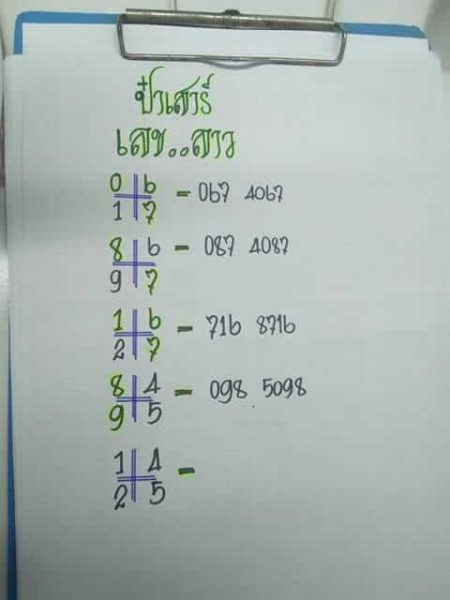 ป๋าเสาร์
เลข..ลาว
0 6
1 7 - 067 4067
8 6
9 7 - 087 4087
1 6
2 7 - 716 8716
8 4
9 5 - 098 5098
1 4
2 5 -